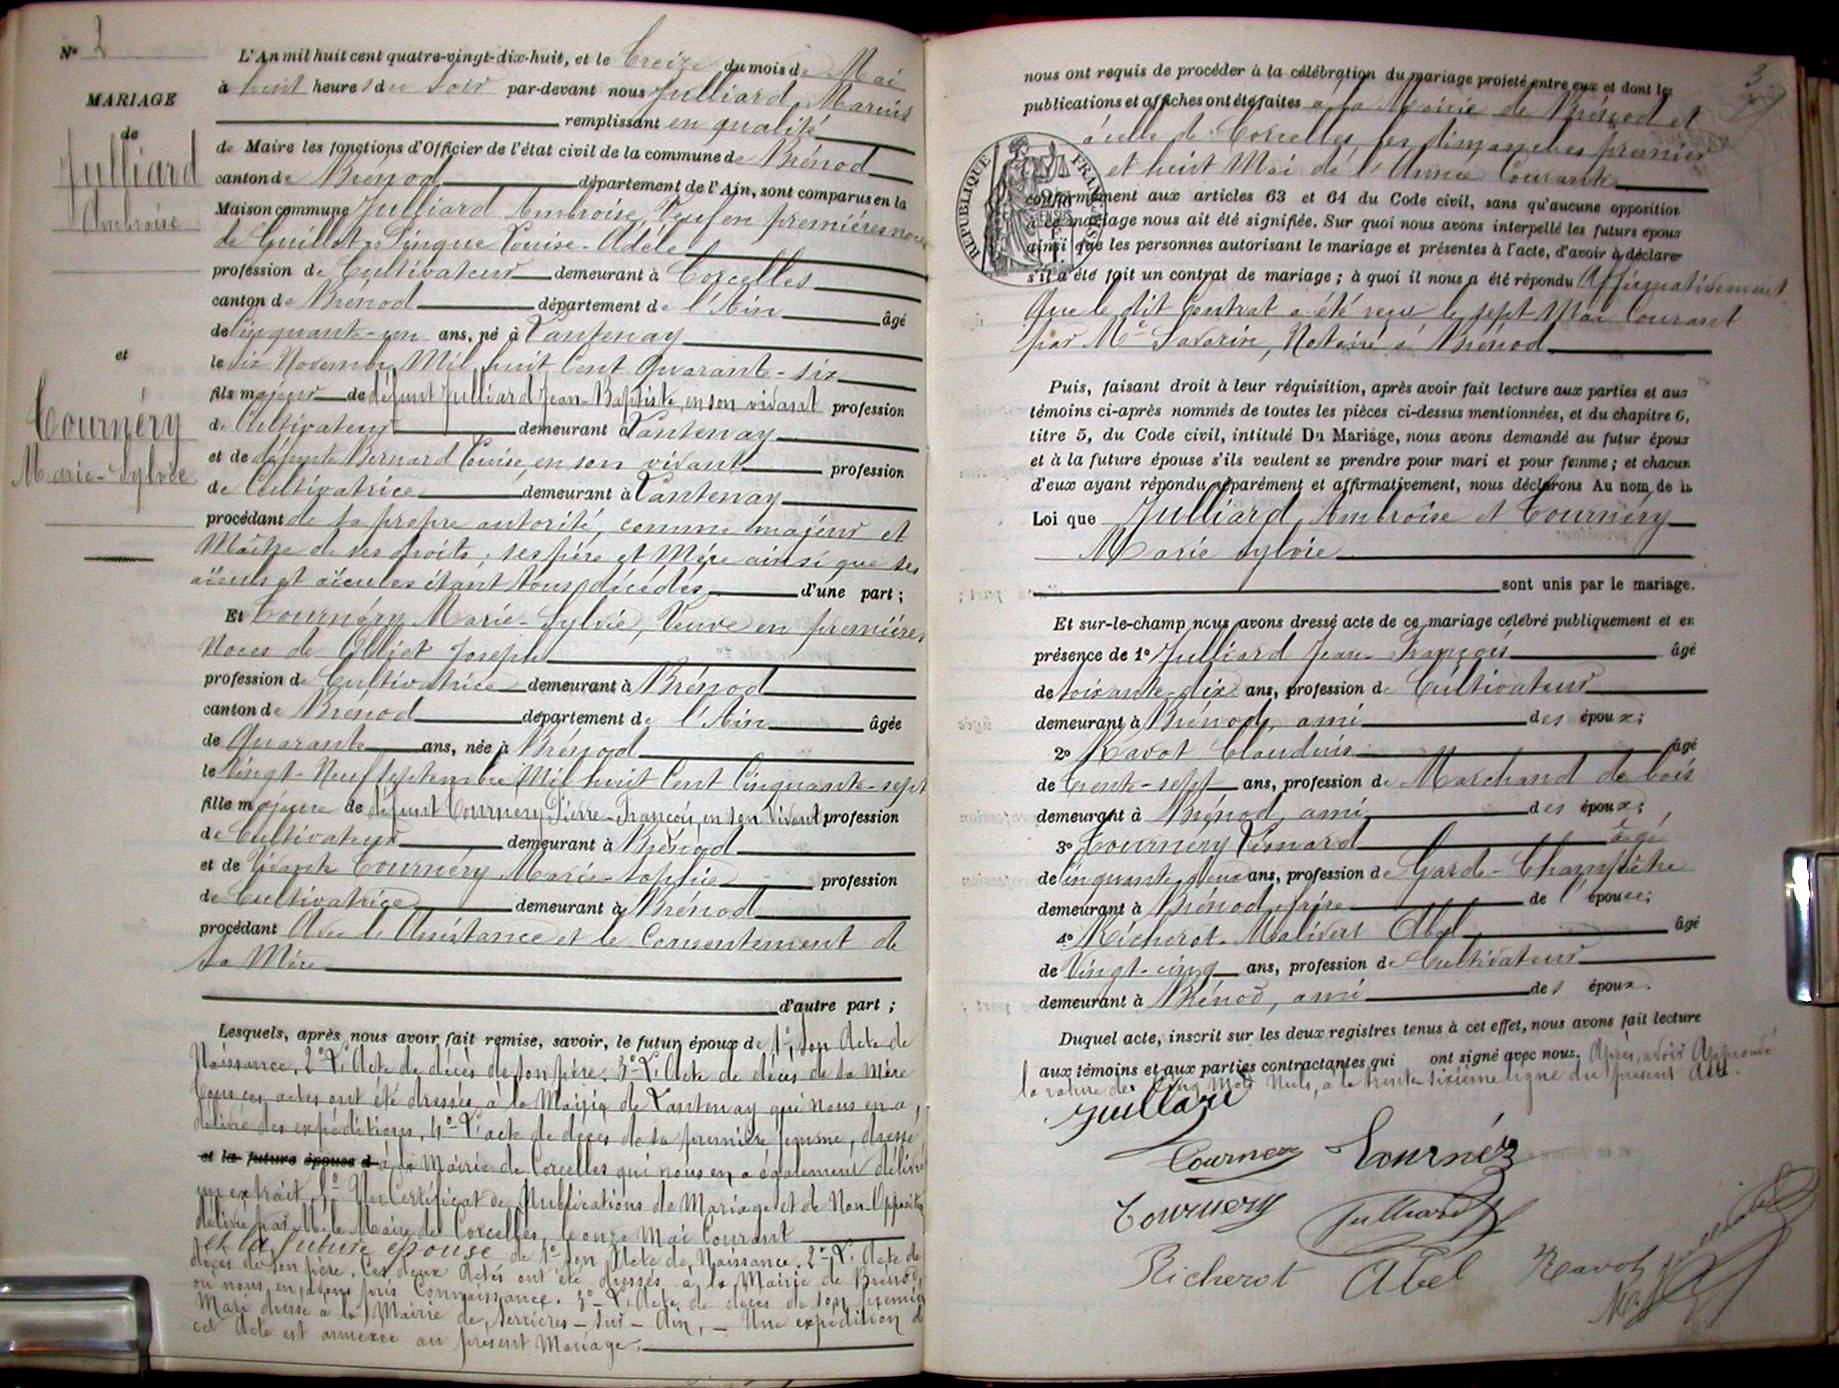 N° 2
MARIAGE
de
Julliard
Ambroise
et
Tournéry
Marie-Sylvie
L'An mil huit cent quatre-vingt-dix-huit, et le treize du mois de Mai
à huit heures du soir par-devant nous Julliard, Marius
remplissant en qualité
de Maire les fonctions d'Officier de l'état civil de la commune de Brénod
canton de Brénod département de l'Ain, sont comparus en la
Maison commune Julliard Ambroise, Veuf en premières noces
de Guillot Louise-Adèle
profession de Cultivateur demeurant à Corcelles
canton de Brénod département de l'Ain âgé
de cinquante-un ans, né à Lantenay
le dix Novembre Mil huit Cent Quarante-six
fils majeur de défunt Julliard Jean-Baptiste, en son vivant profession
de Cultivateur demeurant à Lantenay
et de défunte Bernard Louise, en son vivant profession
de Cultivatrice demeurant à Lantenay
procédant de sa propre autorité, comme majeur et
Maître de ses droits; ses père et Mère ainsi que ses
aïeuls et aïeules étant tous décédés d'une part;
Et Tournéry Marie-Sylvie, Veuve en premières
Noces de Olliet Joseph
profession de Cultivatrice demeurant à Brénod
canton de Brénod département de l'Ain âgée
de Quarante ans, née à Brénod
le Vingt-Neuf Septembre Mil huit Cent Cinquante-sept
fille majeure de défunt Tournéry Pierre-François, en son Vivant profession
de Cultivateur demeurant à Brénod
et de Vivante Tournéry Marie-Sophie profession
de Cultivatrice demeurant à Brénod
procédant Avec l'Assistance et le Consentement de
sa Mère
d'autre part;
Lesquels, après nous avoir fait remise, savoir, le futur époux de 1°, son Acte de
Naissance. 2° L'Acte de décès de son père. 3° L'Acte de décès de sa Mère
tous ces actes ont été dressés à la Mairie de Lantenay qui nous en a
délivré des expéditions, 4° L'acte de décès de sa première femme, dressé
et la future épouse d à la Mairie de Corcelles qui nous en a également délivré
un extrait, 5° Un Certificat de Publications de Mariage et de Non-Opposition
délivré par M. le Maire de Corcelles, le onze Mai Courant
et la future épouse de 1° son Acte de Naissance. 2° L'Acte de
décès de son père. Ces deux Actes ont été dressés à la Mairie de Brénod,
où nous en avons pris Connaissance. 3° L'Acte de décès de son premier
Mari dressé à la Mairie de Serrières-sur-Ain, Une expédition de
cet Acte est annexée au présent Mariage.
3
nous ont requis de procéder à la célébration du mariage projeté entre eux et dont les
publications et affiches ont été faites à la Mairie de Brénod et
à celle de Corcelles, les dimanches premier
et huit Mai de l'Année Courante
conformément aux articles 63 et 64 du Code civil, sans qu'aucune opposition
à ce mariage nous ait été signifiée. Sur quoi nous avons interpellé les futurs époux
ainsi que les personnes autorisant le mariage et présentes à l'acte, d'avoir à déclarer
s'il a été fait un contrat de mariage; à quoi il nous a été répondu Affirmativement
Que le dit Contrat a été reçu le sept Mai Courant
par Me Savarin, Notaire à Brénod
REPUBLIQUE FRANÇAISE
Puis, faisant droit à leur réquisition, après avoir fait lecture aux parties et aux
témoins ci-après nommés de toutes les pièces ci-dessus mentionnées, et du chapitre 6,
titre 5, du Code civil, intitulé Du Mariage, nous avons demandé au futur époux
et à la future épouse s'ils veulent se prendre pour mari et pour femme; et chacun
d'eux ayant répondu séparément et affirmativement, nous déclarons Au nom de la
Loi que Julliard, Ambroise et Tournéry
Marie Sylvie
sont unis par le mariage.
Et sur-le-champ nous avons dressé acte de ce mariage célébré publiquement et en
présence de 1° Julliard Jean-François âgé
de soixante-dix ans, profession de Cultivateur
demeurant à Brénod, ami des époux;
2° Ravot Claudius âgé
de trente-sept ans, profession de Marchand de bois
demeurant à Brénod, ami des époux;
3° Tournéry Léonard âgé
de cinquante-deux ans, profession de Garde-Champêtre
demeurant à Brénod, frère de l'épouse;
4° Richerot-Malivert Abel âgé
de Vingt-cinq ans, profession de Cultivateur
demeurant à Brénod, ami des époux.
Duquel acte, inscrit sur les deux registres tenus à cet effet, nous avons fait lecture
aux témoins et aux parties contractantes qui ont signé avec nous. Après avoir Approuvé
la rature de Cinq Mots Nuls, à la trente sixième ligne du présent Acte.
Julliard
Tournery Tournéry
Tournery Julliard
Richerot Abel Ravot